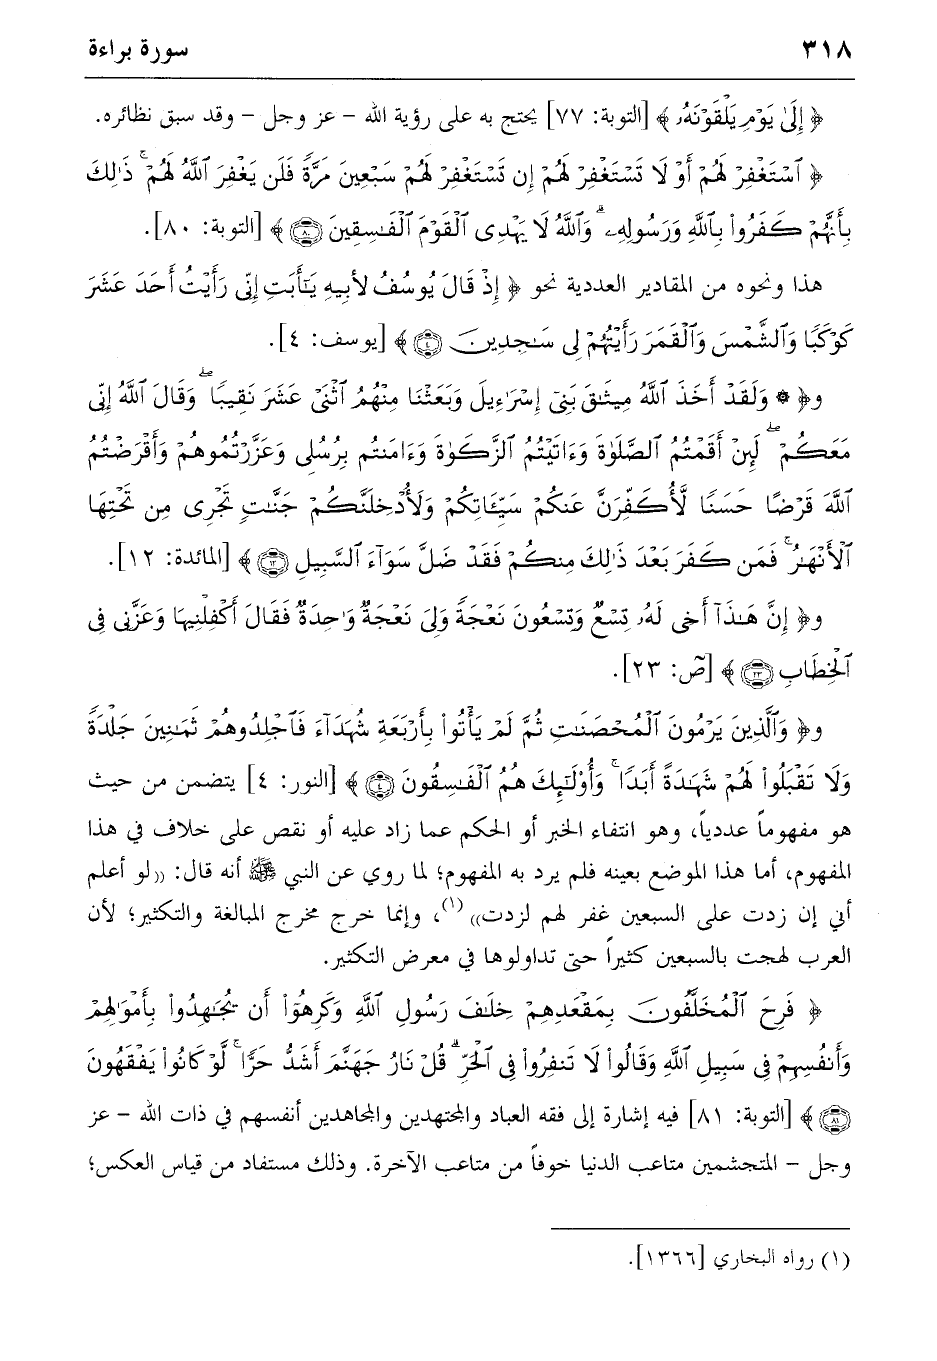 ٣١٨ سورة براءة
﴿ إِلَىٰ يَوْمِ يَلْقَوْنَهُۥ ﴾ [التوبة: ٧٧] يحتج به على رؤية الله – عز وجل – وقد سبق نظائره.
﴿ ٱسْتَغْفِرْ لَهُمْ أَوْ لَا تَسْتَغْفِرْ لَهُمْ إِن تَسْتَغْفِرْ لَهُمْ سَبْعِينَ مَرَّةً فَلَن يَغْفِرَ ٱللَّهُ لَهُمْ ۚ ذَٰلِكَ
بِأَنَّهُمْ كَفَرُوا۟ بِٱللَّهِ وَرَسُولِهِۦ ۗ وَٱللَّهُ لَا يَهْدِى ٱلْقَوْمَ ٱلْفَـٰسِقِينَ ٨٠ ﴾ [التوبة: ٨٠].
هذا ونحوه من المقادير العددية نحو ﴿ إِذْ قَالَ يُوسُفُ لِأَبِيهِ يَـٰٓأَبَتِ إِنِّى رَأَيْتُ أَحَدَ عَشَرَ
كَوْكَبًا وَٱلشَّمْسَ وَٱلْقَمَرَ رَأَيْتُهُمْ لِى سَـٰجِدِينَ ٤ ﴾ [يوسف: ٤].
و﴿ ۞ وَلَقَدْ أَخَذَ ٱللَّهُ مِيثَـٰقَ بَنِىٓ إِسْرَٰٓءِيلَ وَبَعَثْنَا مِنْهُمُ ٱثْنَىْ عَشَرَ نَقِيبًا ۖ وَقَالَ ٱللَّهُ إِنِّى
مَعَكُمْ ۖ لَئِنْ أَقَمْتُمُ ٱلصَّلَوٰةَ وَءَاتَيْتُمُ ٱلزَّكَوٰةَ وَءَامَنتُم بِرُسُلِى وَعَزَّرْتُمُوهُمْ وَأَقْرَضْتُمُ
ٱللَّهَ قَرْضًا حَسَنًا لَّأُكَفِّرَنَّ عَنكُمْ سَيِّـَٔاتِكُمْ وَلَأُدْخِلَنَّكُمْ جَنَّـٰتٍ تَجْرِى مِن تَحْتِهَا
ٱلْأَنْهَـٰرُ ۚ فَمَن كَفَرَ بَعْدَ ذَٰلِكَ مِنكُمْ فَقَدْ ضَلَّ سَوَآءَ ٱلسَّبِيلِ ١٢ ﴾ [المائدة: ١٢].
و﴿ إِنَّ هَـٰذَآ أَخِى لَهُۥ تِسْعٌ وَتِسْعُونَ نَعْجَةً وَلِىَ نَعْجَةٌ وَٰحِدَةٌ فَقَالَ أَكْفِلْنِيهَا وَعَزَّنِى فِى
ٱلْخِطَابِ ٢٣ ﴾ [صٓ: ٢٣].
و﴿ وَٱلَّذِينَ يَرْمُونَ ٱلْمُحْصَنَـٰتِ ثُمَّ لَمْ يَأْتُوا۟ بِأَرْبَعَةِ شُهَدَآءَ فَٱجْلِدُوهُمْ ثَمَـٰنِينَ جَلْدَةً
وَلَا تَقْبَلُوا۟ لَهُمْ شَهَـٰدَةً أَبَدًا ۚ وَأُو۟لَـٰٓئِكَ هُمُ ٱلْفَـٰسِقُونَ ٤ ﴾ [النور: ٤] يتضمن من حيث
هو مفهوماً عددياً، وهو انتفاء الخبر أو الحكم عما زاد عليه أو نقص على خلاف في هذا
المفهوم، أما هذا الموضع بعينه فلم يرد به المفهوم؛ لما روي عن النبي ﷺ أنه قال: «لو أعلم
أني إن زدت على السبعين غفر لهم لزدت»(١)، وإنما خرج مخرج المبالغة والتكثير؛ لأن
العرب لهجت بالسبعين كثيراً حتى تداولوها في معرض التكثير.
﴿ فَرِحَ ٱلْمُخَلَّفُونَ بِمَقْعَدِهِمْ خِلَـٰفَ رَسُولِ ٱللَّهِ وَكَرِهُوٓا۟ أَن يُجَـٰهِدُوا۟ بِأَمْوَٰلِهِمْ
وَأَنفُسِهِمْ فِى سَبِيلِ ٱللَّهِ وَقَالُوا۟ لَا تَنفِرُوا۟ فِى ٱلْحَرِّ ۗ قُلْ نَارُ جَهَنَّمَ أَشَدُّ حَرًّا ۚ لَّوْ كَانُوا۟ يَفْقَهُونَ
٨١ ﴾ [التوبة: ٨١] فيه إشارة إلى فقه العباد والمجتهدين والمجاهدين أنفسهم في ذات الله – عز
وجل – المتجشمين متاعب الدنيا خوفاً من متاعب الآخرة. وذلك مستفاد من قياس العكس؛
(١) رواه البخاري [١٣٦٦].